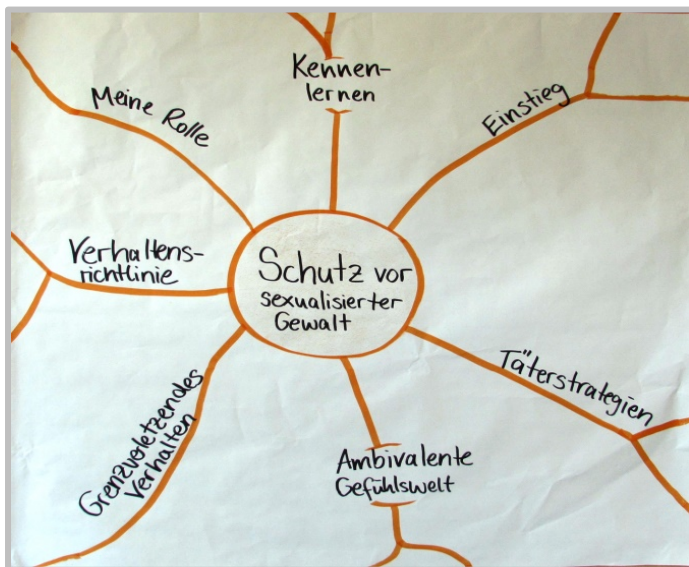 Schutz vor
sexualisierter
Gewalt
Kennen-
lernen
Einstieg
Täterstrategien
Ambivalente
Gefühlswelt
Grenzverletzendes
Verhalten
Verhaltens-
richtlinie
Meine Rolle